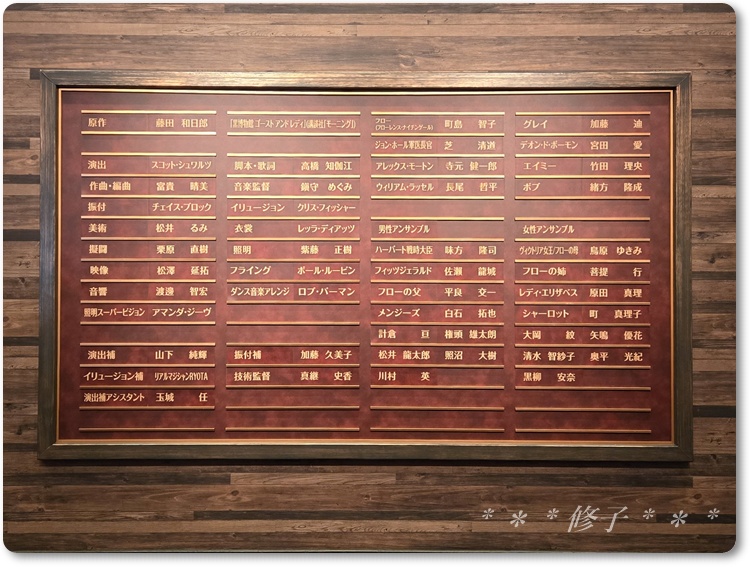 原作 藤田 和日郎
演出 スコット・シュワルツ
作曲・編曲 富貴 晴美
振付 チェイス・ブロック
美術 松井 るみ
擬闘 栗原 直樹
映像 松澤 延拓
音響 渡邉 智宏
照明スーパービジョン アマンダ・ジーヴ
演出補 山下 純輝
イリュージョン補 リアルマジシャンRYOTA
演出補アシスタント 玉城 任
『黒博物館 ゴースト アンド レディ』(講談社「モーニング」)
脚本・歌詞 高橋 知伽江
音楽監督 鎭守 めぐみ
イリュージョン クリス・フィッシャー
衣裳 レッラ・ディアッツ
照明 紫藤 正樹
フライング ポール・ルービン
ダンス音楽アレンジ ロブ・バーマン
振付補 加藤 久美子
技術監督 真継 史香
フロー
(フローレンス・ナイチンゲール) 町島 智子
ジョン・ホール軍医長官 芝 清道
アレックス・モートン 寺元 健一郎
ウィリアム・ラッセル 長尾 哲平
男性アンサンブル
ハーバート戦時大臣 味方 隆司
フィッツジェラルド 佐瀬 龍城
フローの父 平良 交一
メンジーズ 白石 拓也
計倉 亘 権頭 雄太朗
松井 龍太郎 照沼 大樹
川村 英
グレイ 加藤 迪
デオン・ド・ボーモン 宮田 愛
エイミー 竹田 理央
ボブ 緒方 隆成
女性アンサンブル
ヴィクトリア女王/フローの母 鳥原 ゆきみ
フローの姉 菩提 行
レディ・エリザベス 原田 真理
シャーロット 町 真理子
大岡 紋 矢鳴 優花
清水 智紗子 奥平 光紀
黒柳 安奈
* * * 修子 * * *